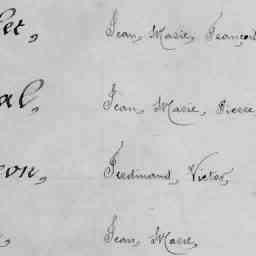 let, Jean, Marie, François
al, Jean, Marie, Pierre
eon, Ferdinand, Victor,
Jean, Marie,